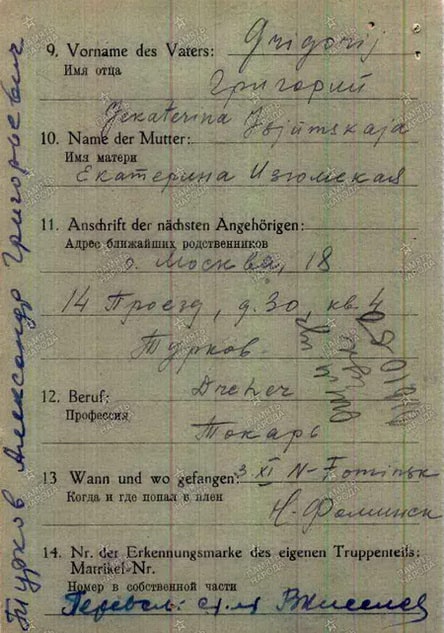 9. Vorname des Vaters: Grigorij
Имя отца Григорий
Jekaterina
10. Name der Mutter:
Имя матери
Екатерина Изюмская
11. Anschrift der nächsten Angehörigen:
Адрес ближайших родственников
г. Москва, 18
14 Проезд, д. 30, кв. 4
Турков
12. Beruf: Dreher
Профессия
Токарь
13 Wann und wo gefangen: 3 XI N-Fominsk
Когда и где попал в плен
Н-Фоминск
14. Nr. der Erkennungsmarke des eigenen Truppenteils:
Matrikel-Nr.
Номер в собственной части
Перевел:
Турков Александр Григорьевич